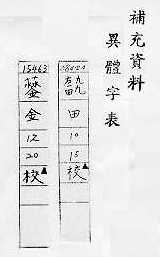 補充資料
異體字表
田
10
15
校▲
15463
金
12
20
校▲